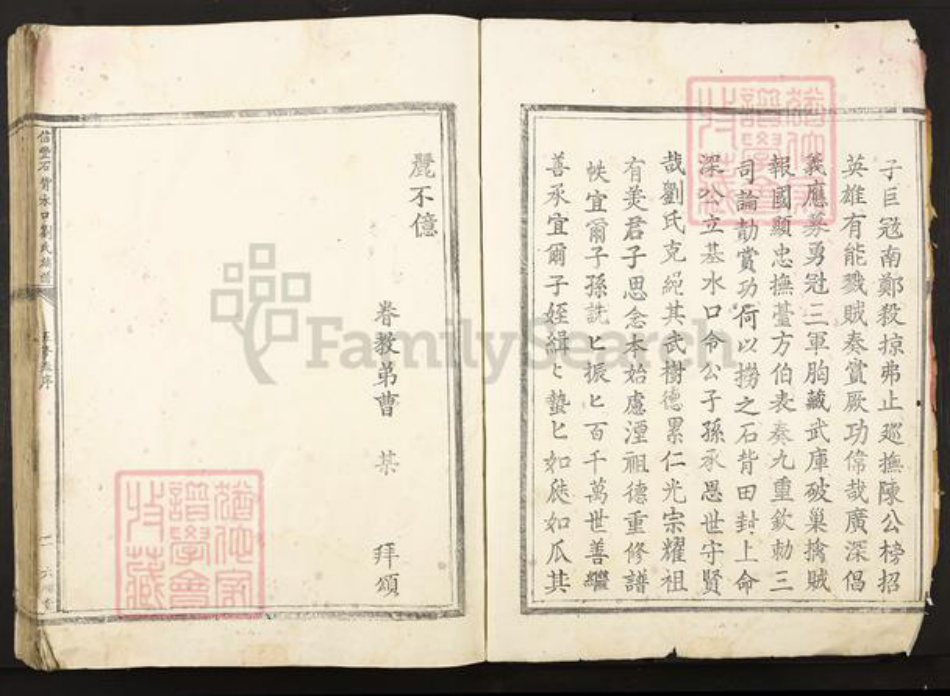 子巨冦南鄭殺掠弗止廵撫陳公榜招
英雄有能戮賊奏賞厥功偉哉廣深倡
義應募勇冠三軍胸藏武庫破巢擒賊
報國顯忠撫臺方伯表奏九重欽勅三
司論勣賞功何以撈之石背田封上命
深公立基水口令公子孫承恩世守賢
哉劉氏克䋲其武樹德累仁光宗耀祖
有羙君子思念本始慮湮祖德重修譜
帙宜爾子孫詵匕振匕百千萬世善繼
善承宜爾子姪緝匕蟄匕如 如瓜其
麗不億
眷教弟曹 某 拜頌
信豐石背水口劉氏族譜
序
FamilySearch
譜學會
收藏
譜學會
收藏